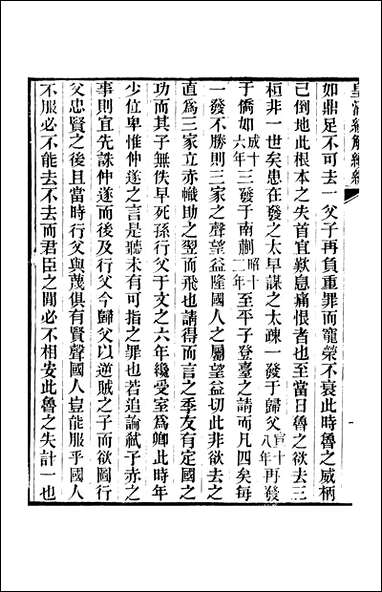 皇清經解續編
如鼎足不可去一父子再負重罪而寵榮不衰此時魯之威柄
己倒地此根本之失首宜歎息痛恨者也至當日魯之欲去三
桓非一世矣患在發之太早謀之太疎一發于歸父宣十八年再發
于僑如成十六年三發于南蒯昭十二年至平子登臺之請而凡四矣每
一發不勝則三家之聲望益隆國人之屬望益切此非欲去之
直爲三家立赤幟助之翌而飛也請得而言之季友有定國之
功而其子無佚早死孫行父于文之六年纔受室爲卿此時年
少位卑惟仲遂之言是聽未有可指之罪也若追論弑子赤之
事則宜先誅仲遂而後及行父今歸父以逆賊之子而欲圖行
父忠賢之後且當時行父與蔑俱有賢聲國人豈能服乎國人
不服必不能去不去而君臣之閒必不相安此魯之失計一也